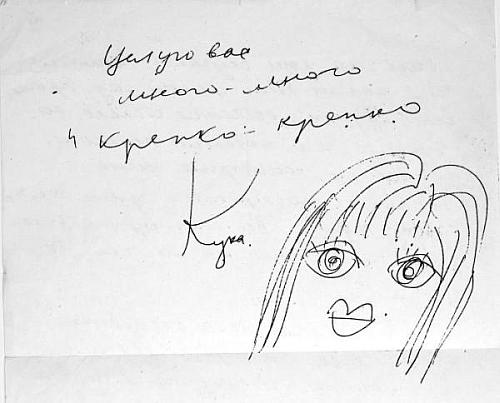 Целую вас
много-много
и крепко-крепко
Кука.